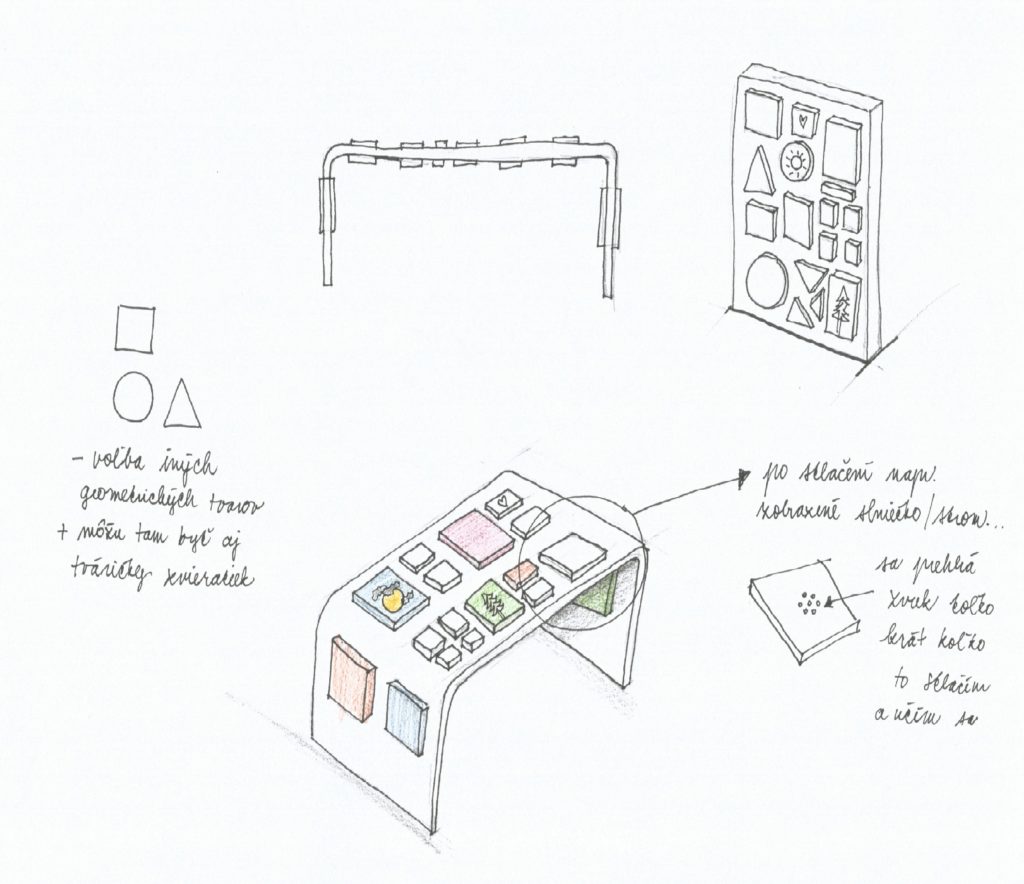 - voľba iných
geometrických tvarov
+ môžu tam byť aj
tváričky zvieratiek
po stlačení napr.
zobrazené slniečko/strom...
sa prehrá
zvuk koľko
krát koľko
to stlačím
a učím sa